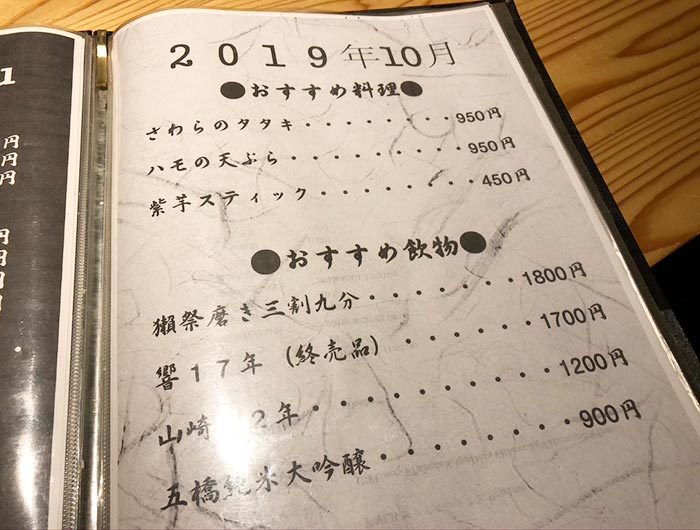 2019年10月
●おすすめ料理●
さわらのタタキ・・・・・・・・950円
ハモの天ぷら・・・・・・・・・950円
紫芋スティック・・・・・・・・450円
●おすすめ飲物●
獺祭磨き三割九分・・・・・・・1800円
響17年（終売品）・・・・・・・1700円
山崎 2年・・・・・・・・・・・1200円
五橋純米大吟醸・・・・・・・・・900円
1
円
円
円
円
円
円
円